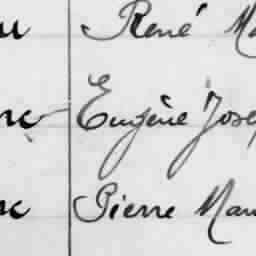 u René Ma
nc Eugène Jose
nc Pierre Mau